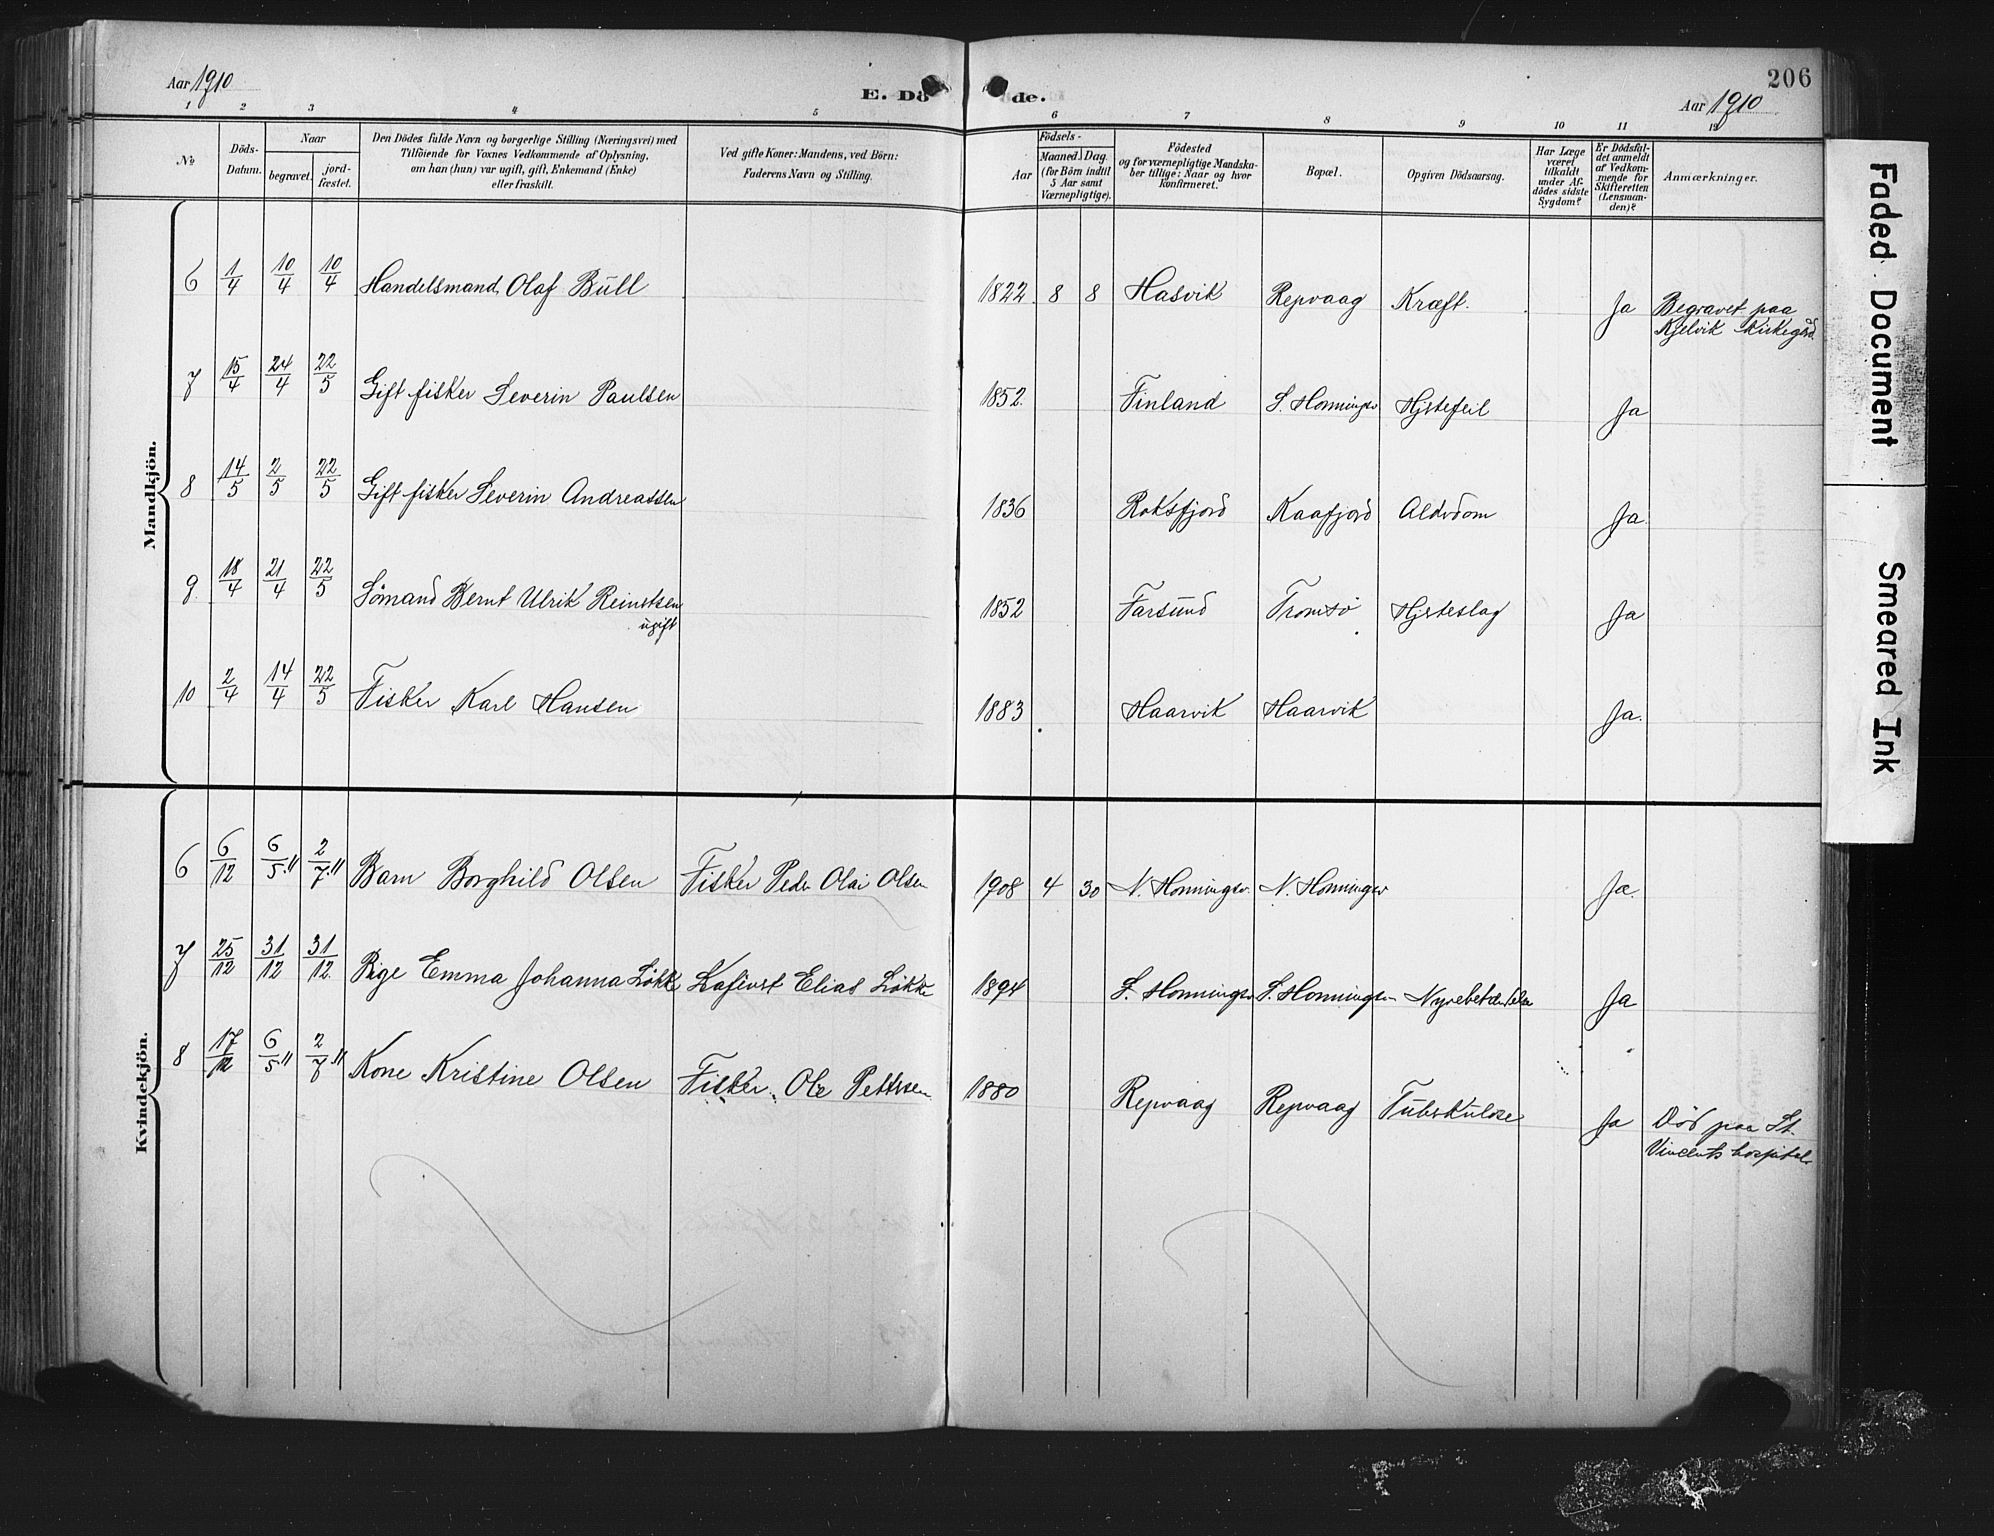 206
Aar 1910
E. Dö de.
Aar 1910
1 2 3 4 5 6 7 8 9 10 11 12
No
Döds-
Datum.
Naar
begravet.
jord-
fæstet.
Den Dödes fulde Navn og borgerlige Stilling (Næringsvei) med
Tilföiende for Voxnes Vedkommende af Oplysning,
om han (hun) var ugift, gift, Enkemand (Enke)
eller fraskilt.
Ved gifte Koner: Mandens, ved Börn:
Faderens Navn og Stilling.
Födsels-
Aar
Maaned. Dag.
(for Börn indtil
5 Aar samt
Værnepligtige).
Födested
og for værnepligtige Mandska-
ber tillige: Naar og hvor
Konfirmeret.
Bopæl.
Opgiven Dödsaarsag.
Har Læge
været
tilkaldt
under Af-
dödes sidste
Sygdom?
Er Dödsfal-
det anmeldt
af Vedkom-
mende for
Skifteretten
(Lensman-
den)?
Anmærkninger.
Mandkjön.
6 1/4 10/4 10/4 Handelsmand Olaf Bull 1822 8 8 Hasvik Repvaag Kræft. Ja Begravet paa
Kjelvik Kirkegård.
7 15/4 24/4 22/5 Gift fisker Severin Paulsen 1852 Finland S. Honningsv Hjertefeil Ja
8 14/5 2/5 22/5 Gift fisker Severin Andreassen 1836 Roksfjord Kaafjord Alderdom Ja
9 18/4 21/4 22/5 Sömand Bernt Ulrik Reinertsen 1852 Farsund Tromsö Hjerteslag Ja
ugift
10 2/4 14/4 22/5 Fisker Karl Hansen 1883 Haarvik Haarvik Ja.
Kvindekjön.
6 6/12 6/5 11 2/7 11 Barn Borghild Olsen Fisker Peder Olai Olsen 1908 4 30 N. Honningsv. N. Honningsv Ja.
7 25/12 31/12 31/12 Pige Emma Johanna Lökke Elias Lökke 1894 S. Honningsv S. Honningsv Nyrebetændelse Ja
8 17/12 6/5 11 2/7 11 Kone Kristine Olsen Fisker Ole Pettersen 1880 Repvaag Repvaag Tuberkulose Ja Död paa St.
Vincents hospital.
Faded Document
Smeared Ink